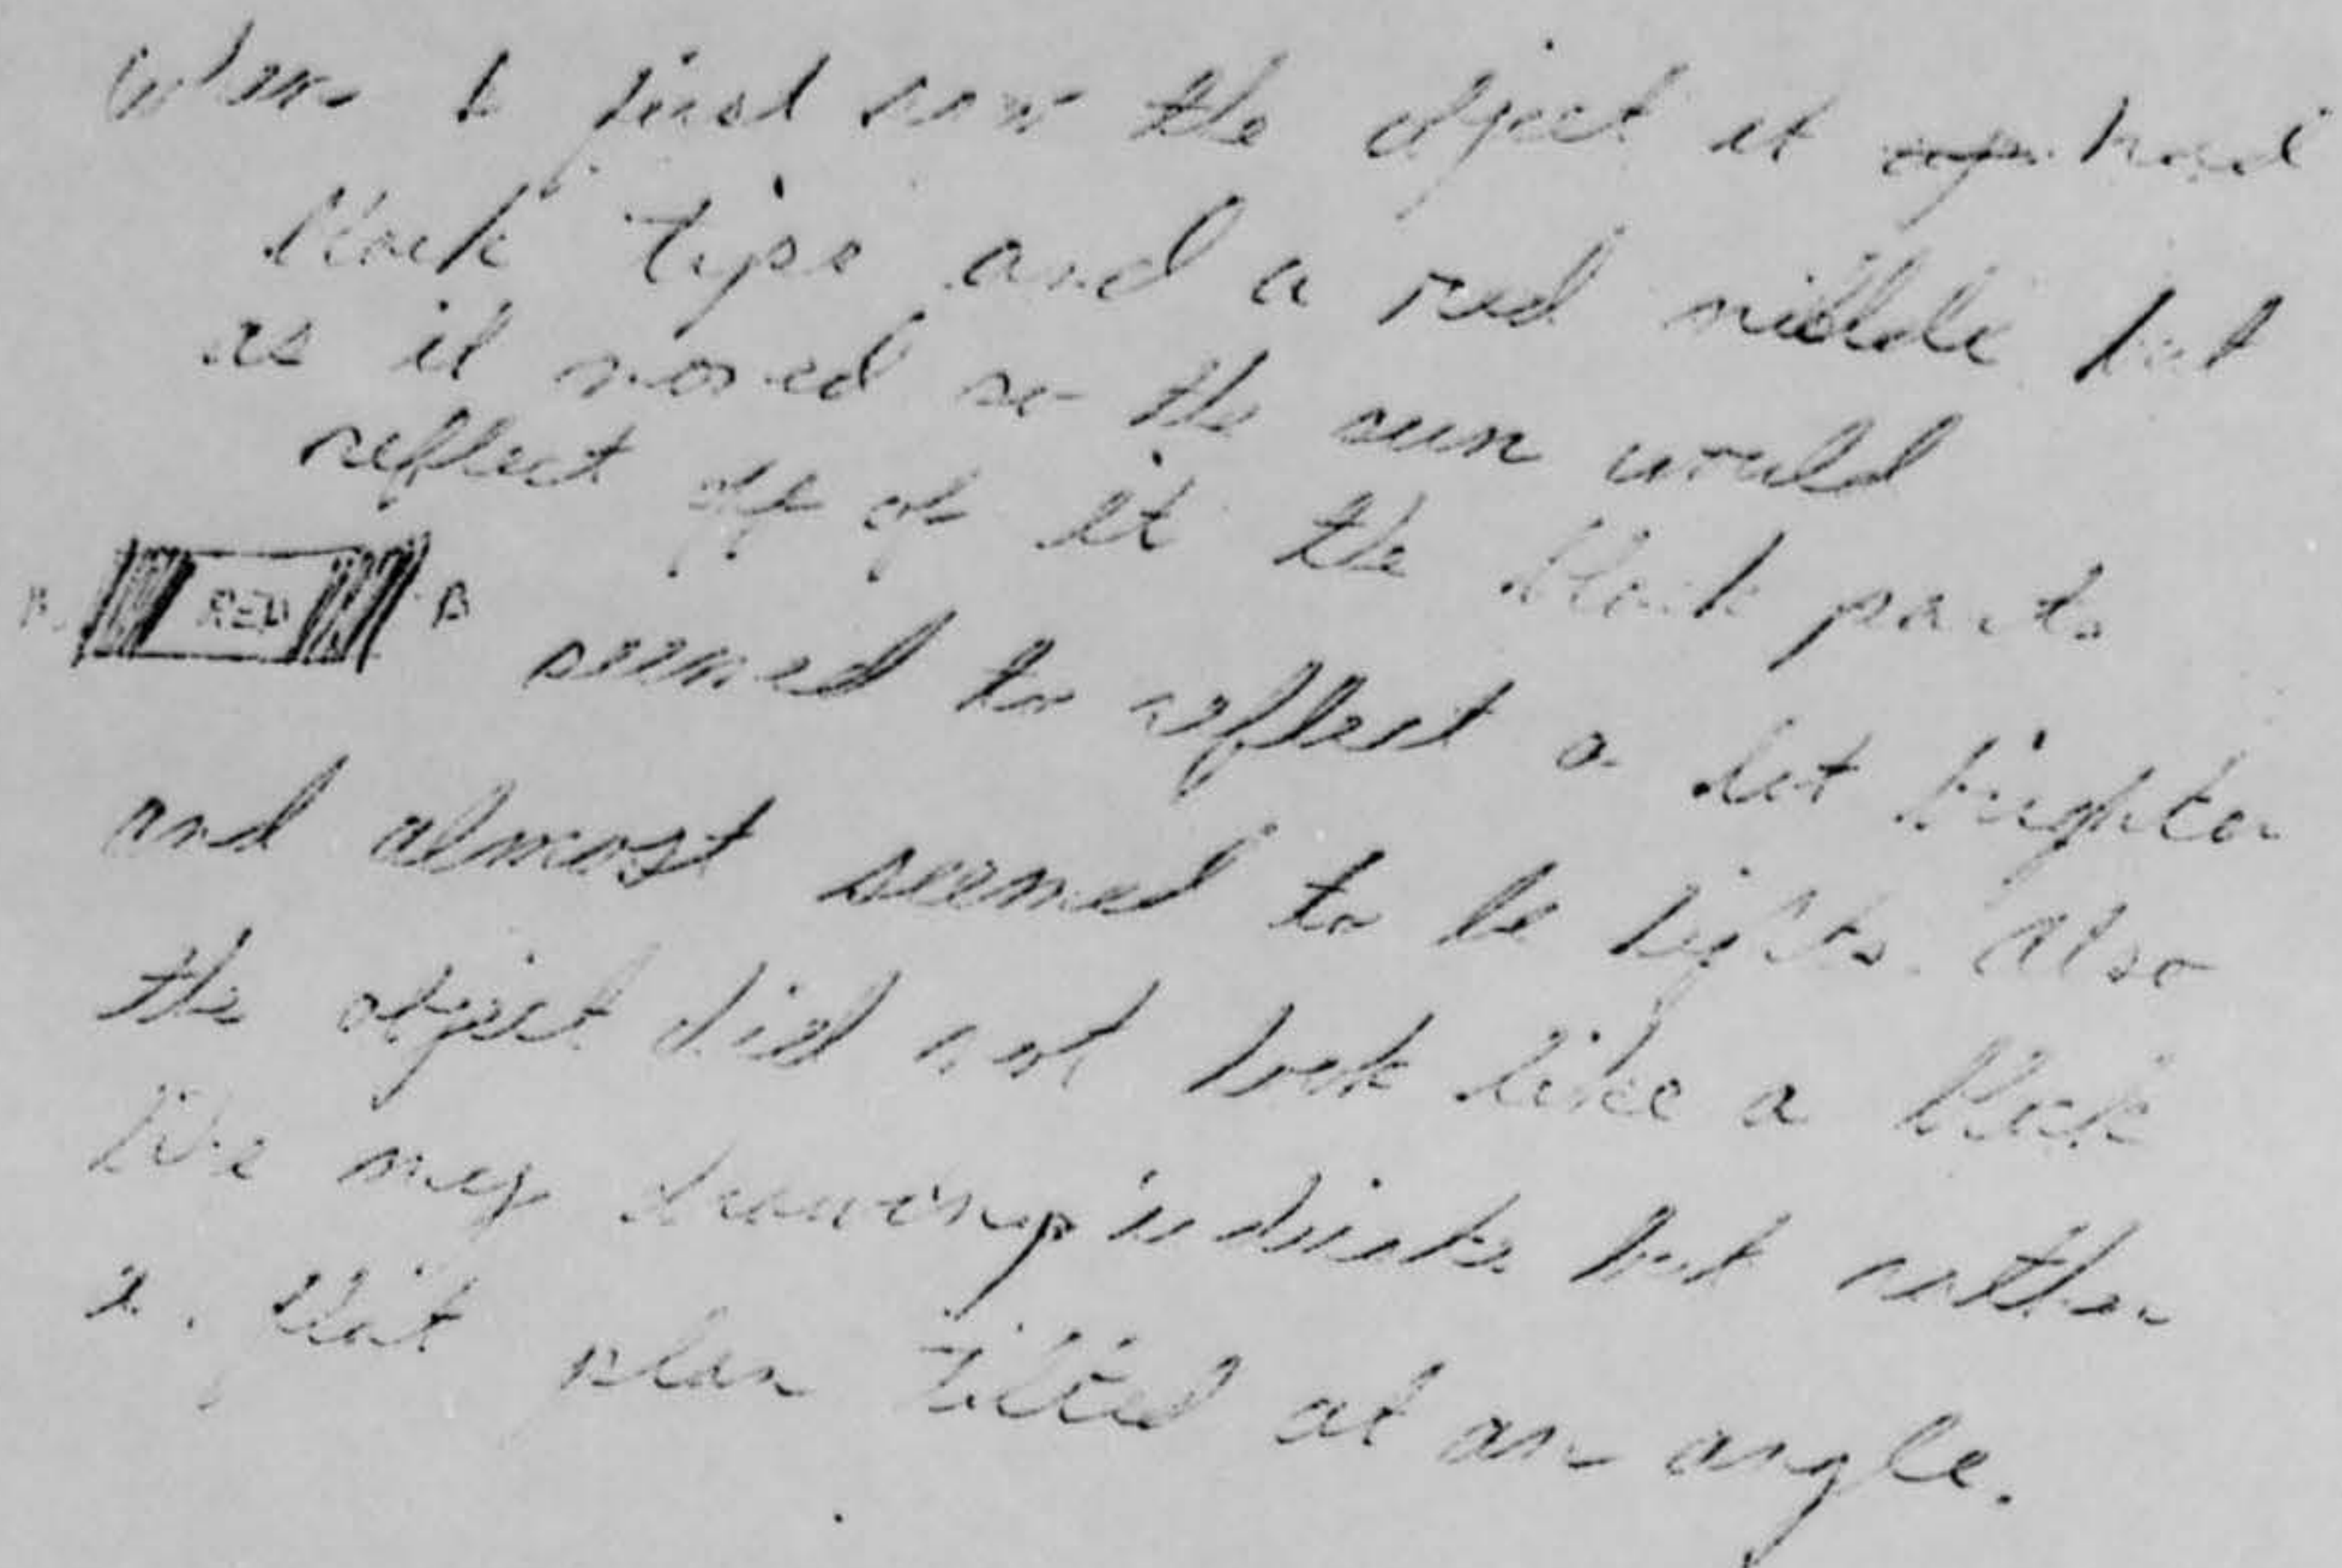 When I first saw the object it ap had
black tips and a red middle but
as it moved so the sun would
reflect off of it the black parts
B RED B
seemed to reflect a lot brighter
and almost seemed to be lights. Also
the object did not look like a block
like my drawing indicate but rather
a flat plan tilted at an angle.